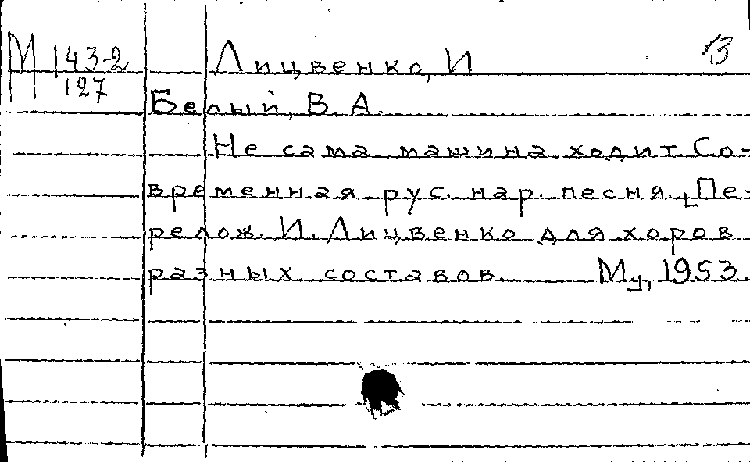 М 143-2
127
Лицвенко, И
13
Белый, В. А.
Не сама машина ходит. Со-
временная рус. нар. песня. [Пе-
релож. И. Лицвенко для хоров
разных составов. Му, 1953.